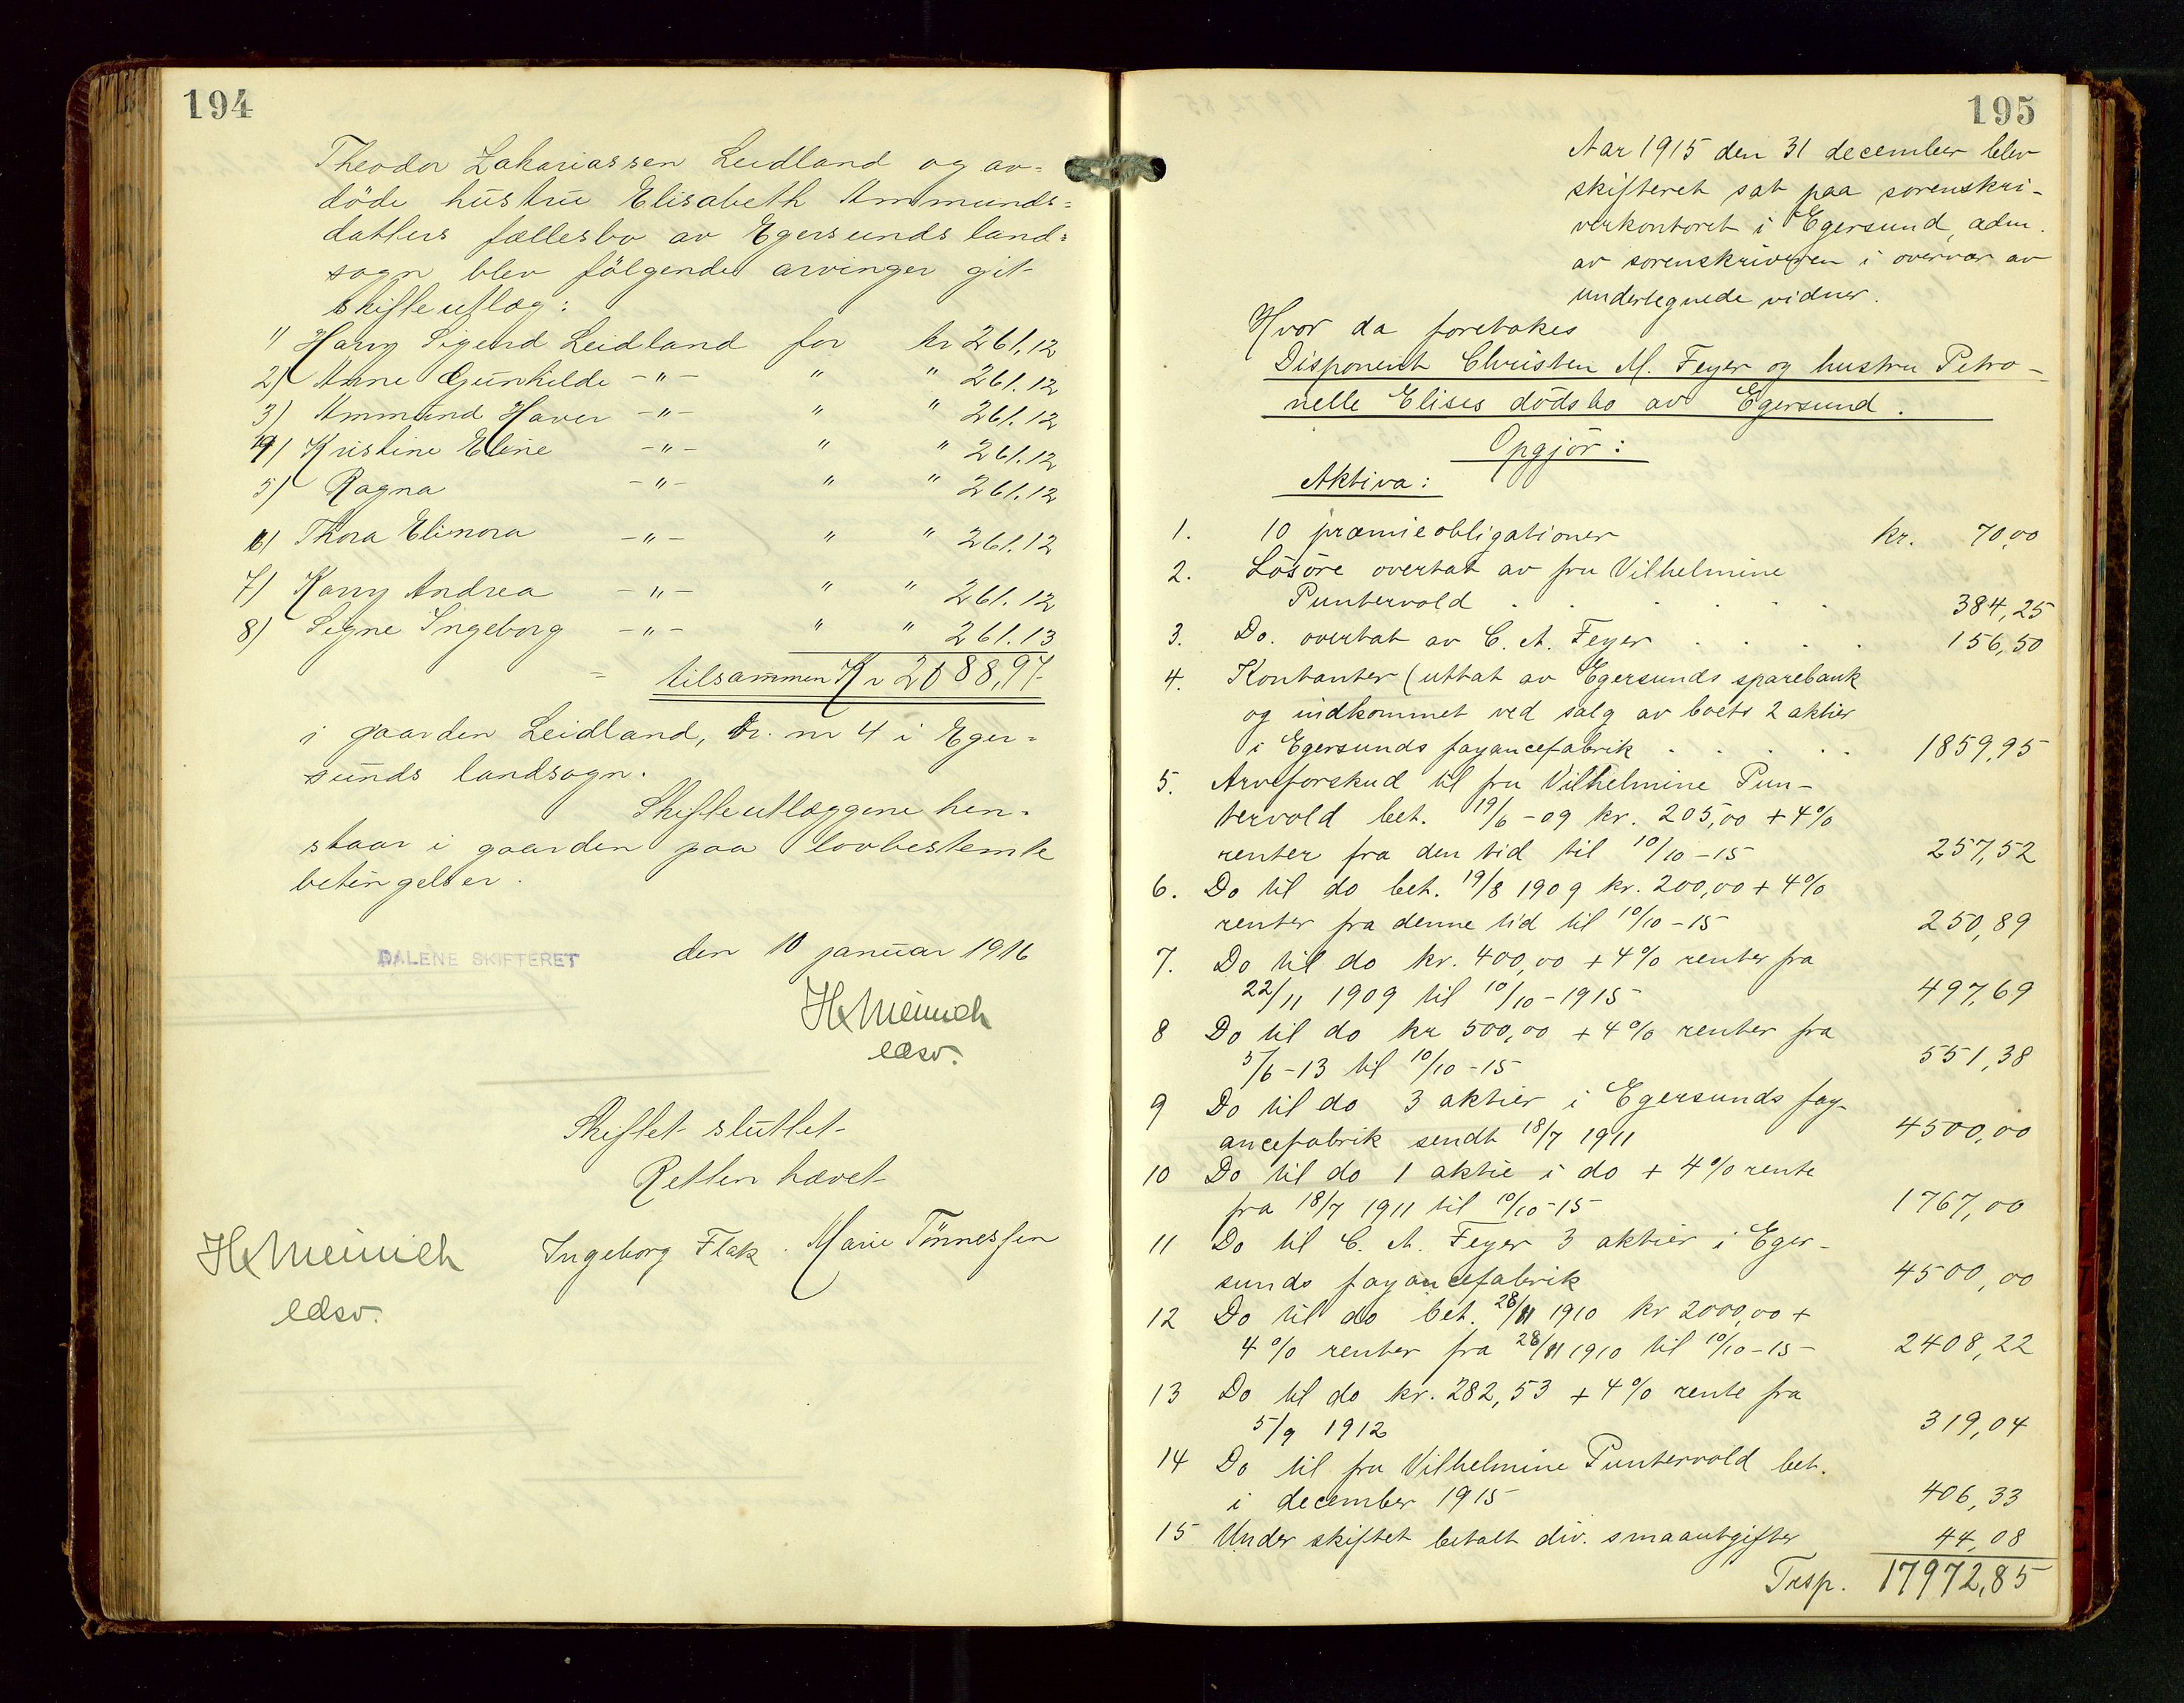 194
Theodor Zakariassen Leidland og av=
döde hustru Elisabeth Ammunds=
datters fællesbo av Egersunds land=
sogn blev følgende arvinger git
skifteutlæg:
1) Harry Sigurd Leidland for kr 261.12
2) Anne Gunhilde -"- " " 261.12
3) Ammund Haver -"- " " 261.12
4) Kristine Eline -"- " " 261.12
5) Ragna -"- " " 261.12
6) Thora Elinora -"- " " 261.12
7) Karry Andrea -"- " " 261.12
8) Signe Ingeborg -"- " " 261.13
= tilsammen Kr 2088,97
i gaarden Leidland, br. nr 4 i Eger=
sunds landsogn.
Skifteutlæggene hen=
staar i gaarden paa lovbestemte
betingelser.
DALENE SKIFTERET den 10 januar 1916
H Meinich
edsv.
Skiftet sluttet
Retten hævet
H Meinich
edsv.
Ingeborg Flak. Marie Tönnessen
195
Aar 1915 den 31 december blev
skifteret sat paa sorenskri-
verkontoret i Egersund, adm.
av sorenskriveren i overvær av
undertegnede vidner.
Hvor da foretokes
Disponent Christen M. Feyer og hustru Petro-
nelle Elises dödsbo av Egersund.
Opgjör:
Aktiva:
1. 10 præmieobligationer kr. 70,00
2. Lösöre overtat av fru Vilhelmine
Puntervold . . . . . . 384,25
3. Do. overtat av C. A. Feyer . . . . 156,50
4. Kontanter (uttat av Egersunds sparebank
og indkommet ved salg av boets 2 aktier
i Egersunds fayancefabrik . . . . . 1859,95
5. Arveforskud til fru Vilhelmine Pun-
tervold bet. 19/6-09 kr. 205,00 + 4%
renter fra den tid til 10/10-15 257,52
6. Do til do bet. 19/8 1909 kr. 200,00 + 4%
renter fra denne tid til 10/10-15 250,89
7. Do til do kr. 400,00 + 4% renter fra
22/11 1909 til 10/10-1915 497,69
8 Do til do kr 500,00 + 4% renter fra
5/6-13 til 10/10-15 551,38
9 Do til do 3 aktier i Egersunds fay-
ancefabrik sendt 18/7 1911 4500,00
10 Do til do 1 aktie i do + 4% rente
fra 18/7 1911 til 10/10-15 1767,00
11 Do til C. A. Feyer 3 aktier i Eger-
sunds fayancefabrik 4500,00
12 Do til do bet. 28/11 1910 kr 2000,00 +
4% renter fra 28/11 1910 til 10/10-15- 2408,22
13 Do til do kr. 282,53 + 4% rente fra
5/9 1912 319,04
14 Do til fru Vilhelmine Puntervold bet.
i december 1915 406,33
15 Under skiftet betalt div. smaautgifter 44,08
Trsp. 17972,85